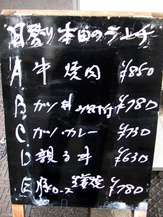 日替り本日のランチ
A 牛焼肉 ¥850
B カツ丼 ¥780
C カツカレー ¥730
D 親子丼 ¥630
E 豚ロース生姜焼 ¥780